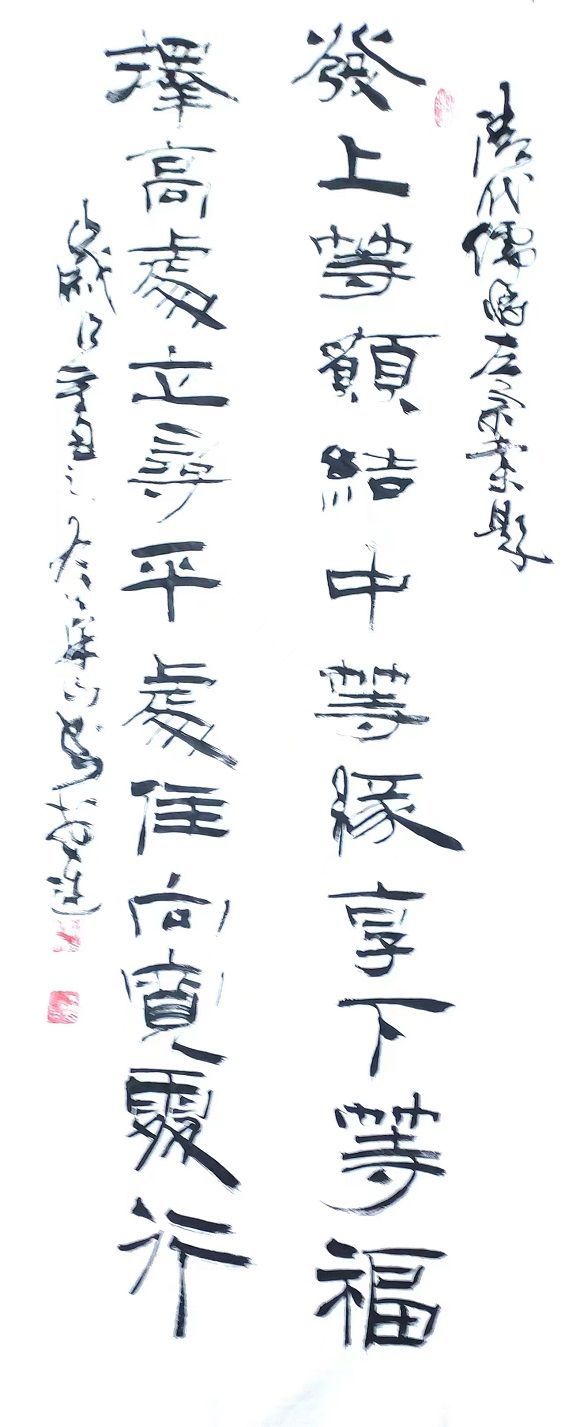 清代儒左宗棠
發上等願結中等緣享下等福
擇高處立尋平處住向寬處行
歲次辛丑之